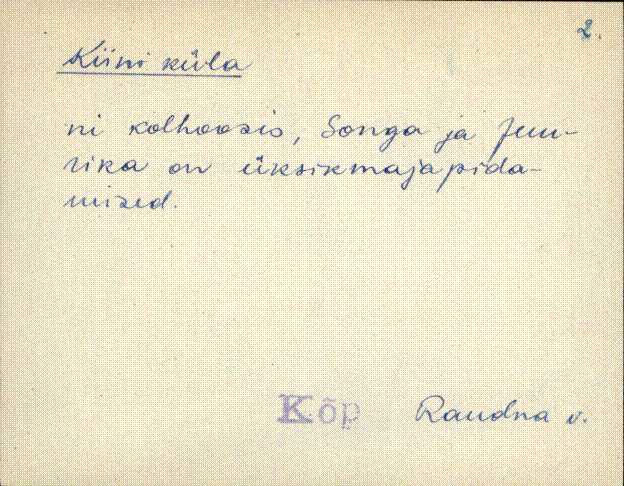 2.
Kiini küla
ni kolhoosis, Songa ja Juu-
rika on üksikmajapida-
mised.
Kõp Raudna v.